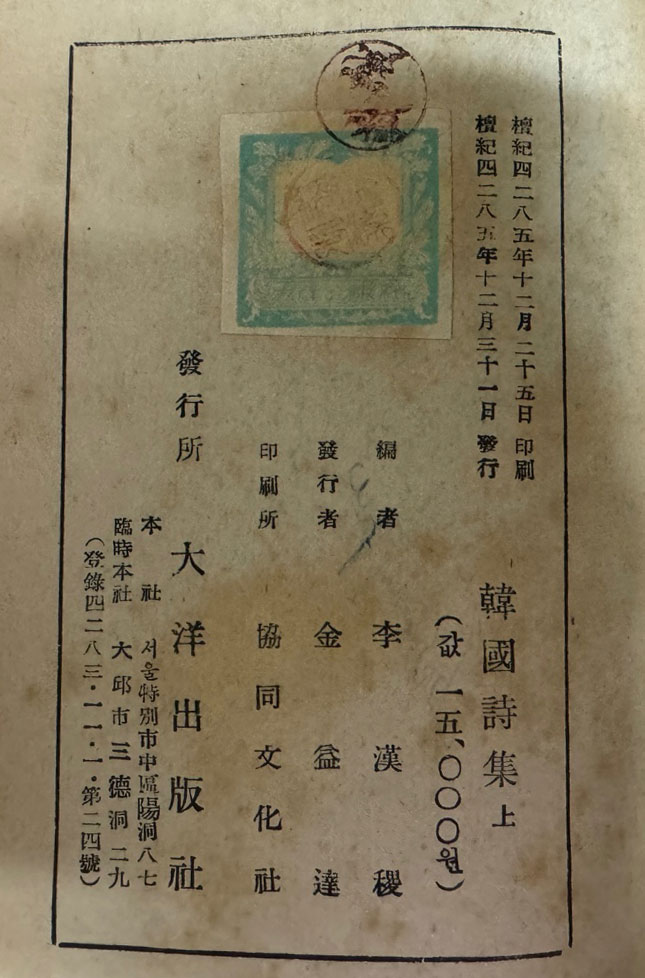 檀紀四二八五年十二月二十五日 印刷
檀紀四二八五年十二月三十一日 發行
韓國詩集 上
(값 一五、〇〇〇원)
編者 李漢稷
發行者 金益達
印刷所 協同文化社
發行所 大洋出版社
本社 서울特別市中區陽洞八七
臨時本社 大邱市三德洞二九
(登錄四二八三・一一・一・第二四號)